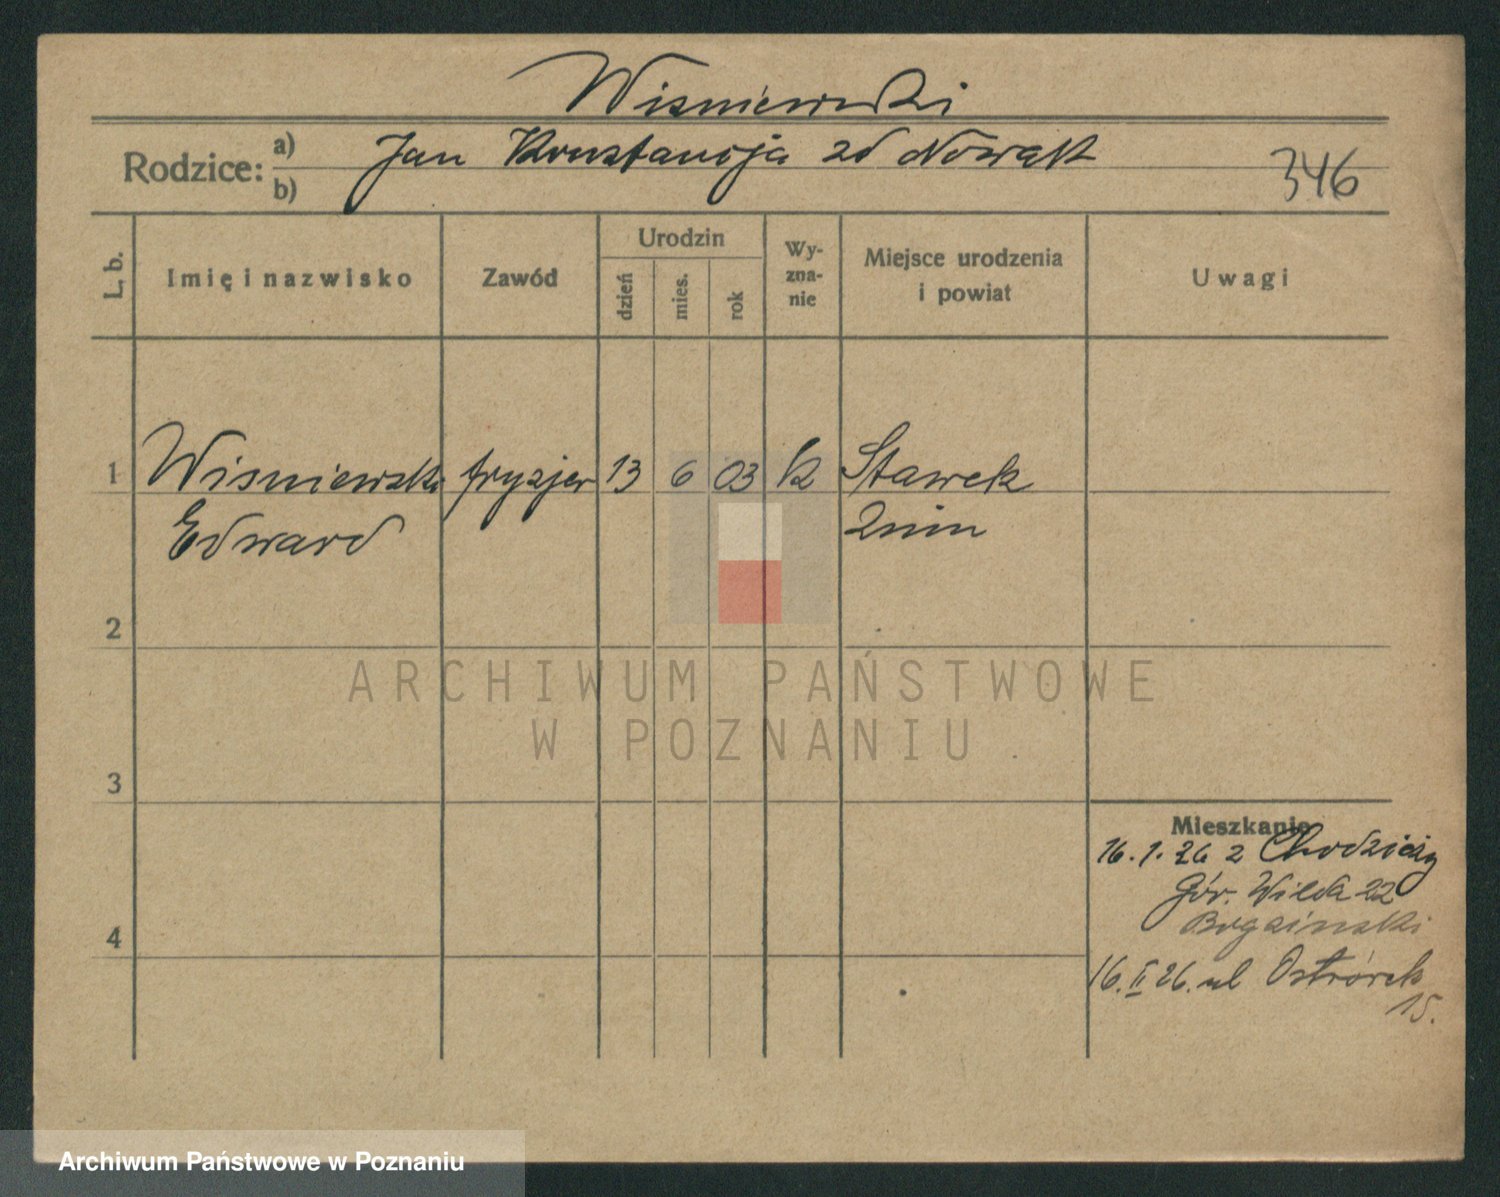 Wisniewski
Rodzice: a) Jan Konstancja zd Nowak
b)
346
L. b.
Imię i nazwisko
Zawód
Urodzin
dzień
mies.
rok
Wy-
zna-
nie
Miejsce urodzenia
i powiat
Uwagi
1 Wisniewski fryzjer 13 6 03 k Stawek
Edward Znin
2
3
4
Mieszkanie
16.1.26 z Chodzieży
Gór. Wilda 22
16.II 26. ul Ostrówek
15.
ARCHIWUM PAŃSTWOWE
W POZNANIU
Archiwum Państwowe w Poznaniu